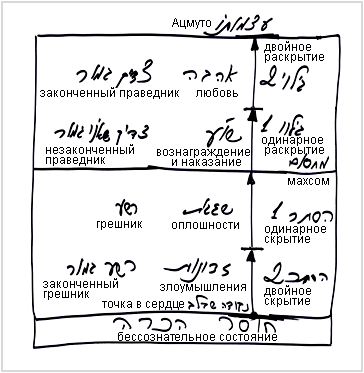 Ацмуто עצמותו
двойное раскрытие
צדיק גמור אהבה גילוי 2
законченный праведник любовь
צדיק שאינו גמור שו"ע גילוי 1
незаконченный праведник вознаграждение и наказание одинарное раскрытие
מחסום
махсом
רשע שגגות הסתר 1
грешник оплошности одинарное скрытие
רשע גמור זדונות הסתר 2
законченный грешник злоумышления двойное скрытие
точка в сердце נקודה שבלב
חוסר הכרה
бессознательное состояние